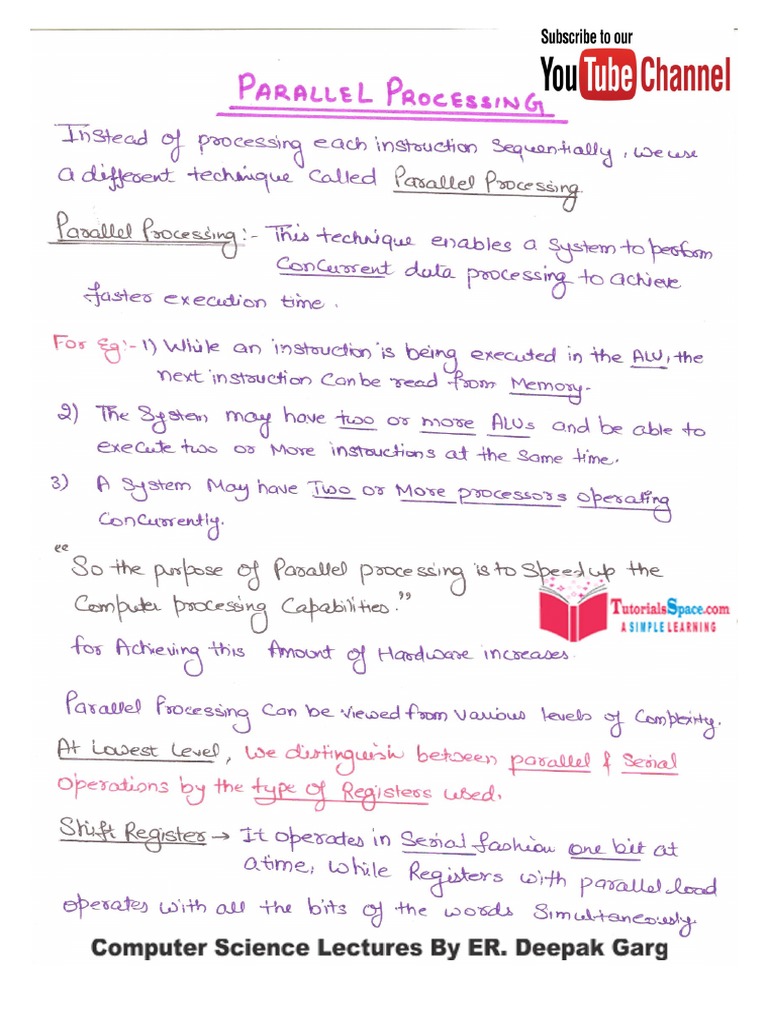 Subscribe to our
YouTube Channel
PARALLEL PROCESSING
Instead of processing each instruction sequentially, we use
a different technique called Parallel Processing.
Parallel Processing:- This technique enables a system to perform
Concurrent data processing to achieve
faster execution time.
For Eg:- 1) While an instruction is being executed in the ALU, the
next instruction can be read from Memory.
2) The System may have two or more ALUs and be able to
execute two or More instructions at the same time.
3) A System May have Two or More processors operating
Concurrently.
"So the purpose of Parallel processing is to Speed up the
Computer processing Capabilities."
TutorialsSpace.com
A SIMPLE LEARNING
for Achieving this Amount of Hardware increases.
Parallel Processing can be viewed from various levels of Complexity.
At Lowest Level, we distinguish between parallel & Serial
Operations by the type of Registers used.
Shift Register → It operates in Serial fashion one bit at
a time, while Registers with parallel load
operates with all the bits of the words Simultaneously
Computer Science Lectures By ER. Deepak Garg